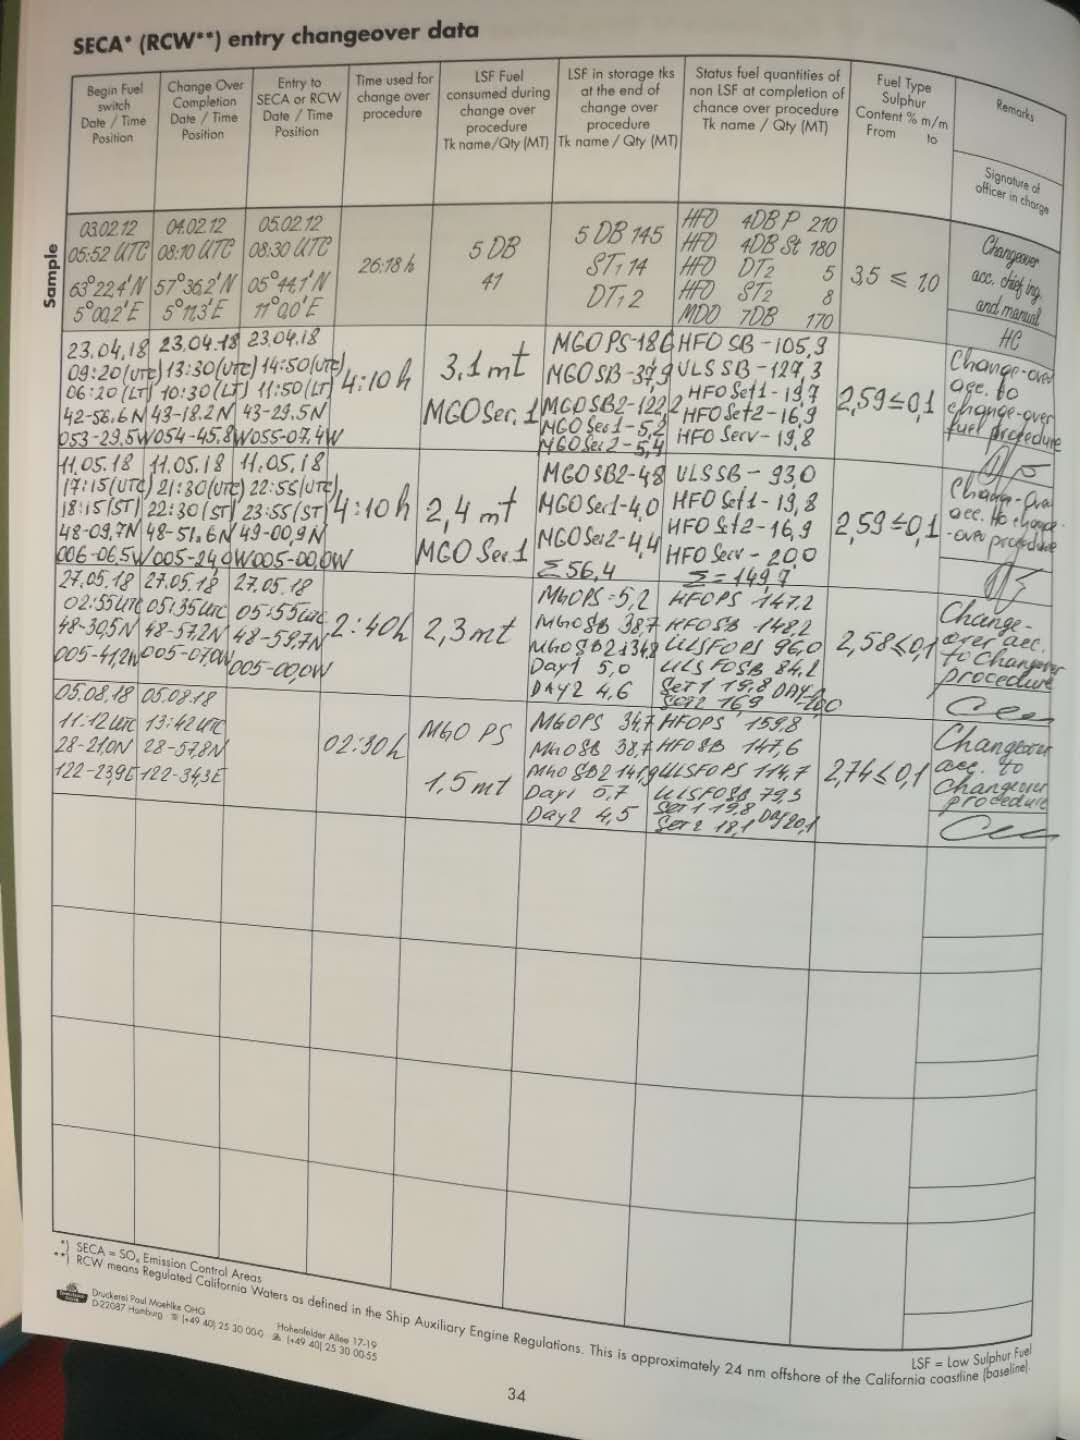 SECA* (RCW**) entry changeover data
Begin Fuel
switch
Date / Time
Position
Change Over
Completion
Date / Time
Position
Entry to
SECA or RCW
Date / Time
Position
Time used for
change over
procedure
LSF Fuel
consumed during
change over
procedure
Tk name/Qty (MT)
LSF in storage tks
at the end of
change over
procedure
Tk name / Qty (MT)
Status fuel quantities of
non LSF at completion of
chance over procedure
Tk name / Qty (MT)
Fuel Type
Sulphur
Content % m/m
From to
Remarks
Signature of
officer in charge
Sample
03.02.12
05:52 UTC
63°22,4'N
5°00,2'E
04.02.12
08:10 UTC
57°36,2'N
5°11,3'E
05.02.12
08:30 UTC
05°44,1'N
11°0,0'E
26:18 h
5 DB
41
5 DB 145
ST1 14
DT1 2
HFO 4DB P 210
HFO 4DB St 180
HFO DT2 5
HFO ST2 8
MDO 7DB 170
3,5 ≤ 1,0
Changeover
acc. chief ing.
and manual
HC
23.04.18
09:20 (UTC)
06:20 (LT)
42-56.6 N
053-29,5W
23.04.18
13:30 (UTC)
10:30 (LT)
43-18.2 N
054-45.8W
23.04.18
14:50 (UTC)
11:50 (LT)
43-29.5N
055-07.4W
4:10 h
3,1 mt
MGO Ser. 1
MGO PS-186
MGO SB-37,9
MGO SB2-122,2
MGO Ser1-5,2
MGO Ser2-5,4
HFO SB-105,9
ULS SB-127,3
HFO Set1-19,7
HFO Set2-16,9
HFO Serv-19,8
2,59≤0,1
Change-over
acc. to
change-over
fuel procedure
11.05.18
17:15 (UTC)
18:15 (ST)
48-09,7N
006-06,5W
11.05.18
21:30 (UTC)
22:30 (ST)
48-51.6N
005-24,0W
11.05.18
22:55 (UTC)
23:55 (ST)
49-00,9N
005-00,0W
4:10 h
2,4 mt
MGO Ser.1
MGO SB2-48
MGO Ser1-4,0
MGO Ser2-4,4
Σ 56,4
ULS SB - 93,0
HFO Set1-19,8
HFO Set2-16,9
HFO Serv - 20,0
Σ = 149,7
2,59≤0,1
Chang-over
acc. to change-
-over procedure
27.05.18
02:55 UTC
48-30,5N
005-41,2W
27.05.18
05:35 UTC
48-57,2N
005-07,0W
27.05.18
05:55 UTC
48-59,7N
005-00,0W
2:40h
2,3 mt
MGO PS-5,2
MGO SB 38,7
MGO SB2 134,8
Day1 5,0
DAY2 4,6
HFO PS 147.2
HFO SB -148,2
ULSFO PS 96,0
ULSFO SB 84,2
Set 1 19,8 DAY 20,0
Set 2 16,9
2,58≤0,1
Change-
over acc.
to Changeover
procedure
05.08.18
11:12 UTC
28-21,0N
122-23,9E
05.08.18
13:42 UTC
28-57,8N
122-34,3E
02:30h
MGO PS
1,5 mt
MGO PS 34,7
MGO SB 38,7
MGO SB2 141,9
Day1 5,7
Day2 4,5
HFO PS 159,8
HFO SB 147,6
ULSFO PS 114,7
ULSFO SB 79,3
Set 1 19,8 Day 20,1
Set 2 18,1
2,74≤0,1
Changeover
acc. to
Changeover
procedure
*) SECA = SOx Emission Control Areas
**) RCW means Regulated California Waters as defined in the Ship Auxiliary Engine Regulations. This is approximately 24 nm offshore of the California coastline (baseline).
LSF = Low Sulphur Fuel
Druckerei Paul Moehlke OHG
D-22087 Hamburg ☏ (+49 40) 25 30 00-0
Hohenfelder Allee 17-19
(+49 40) 25 30 00-55
34